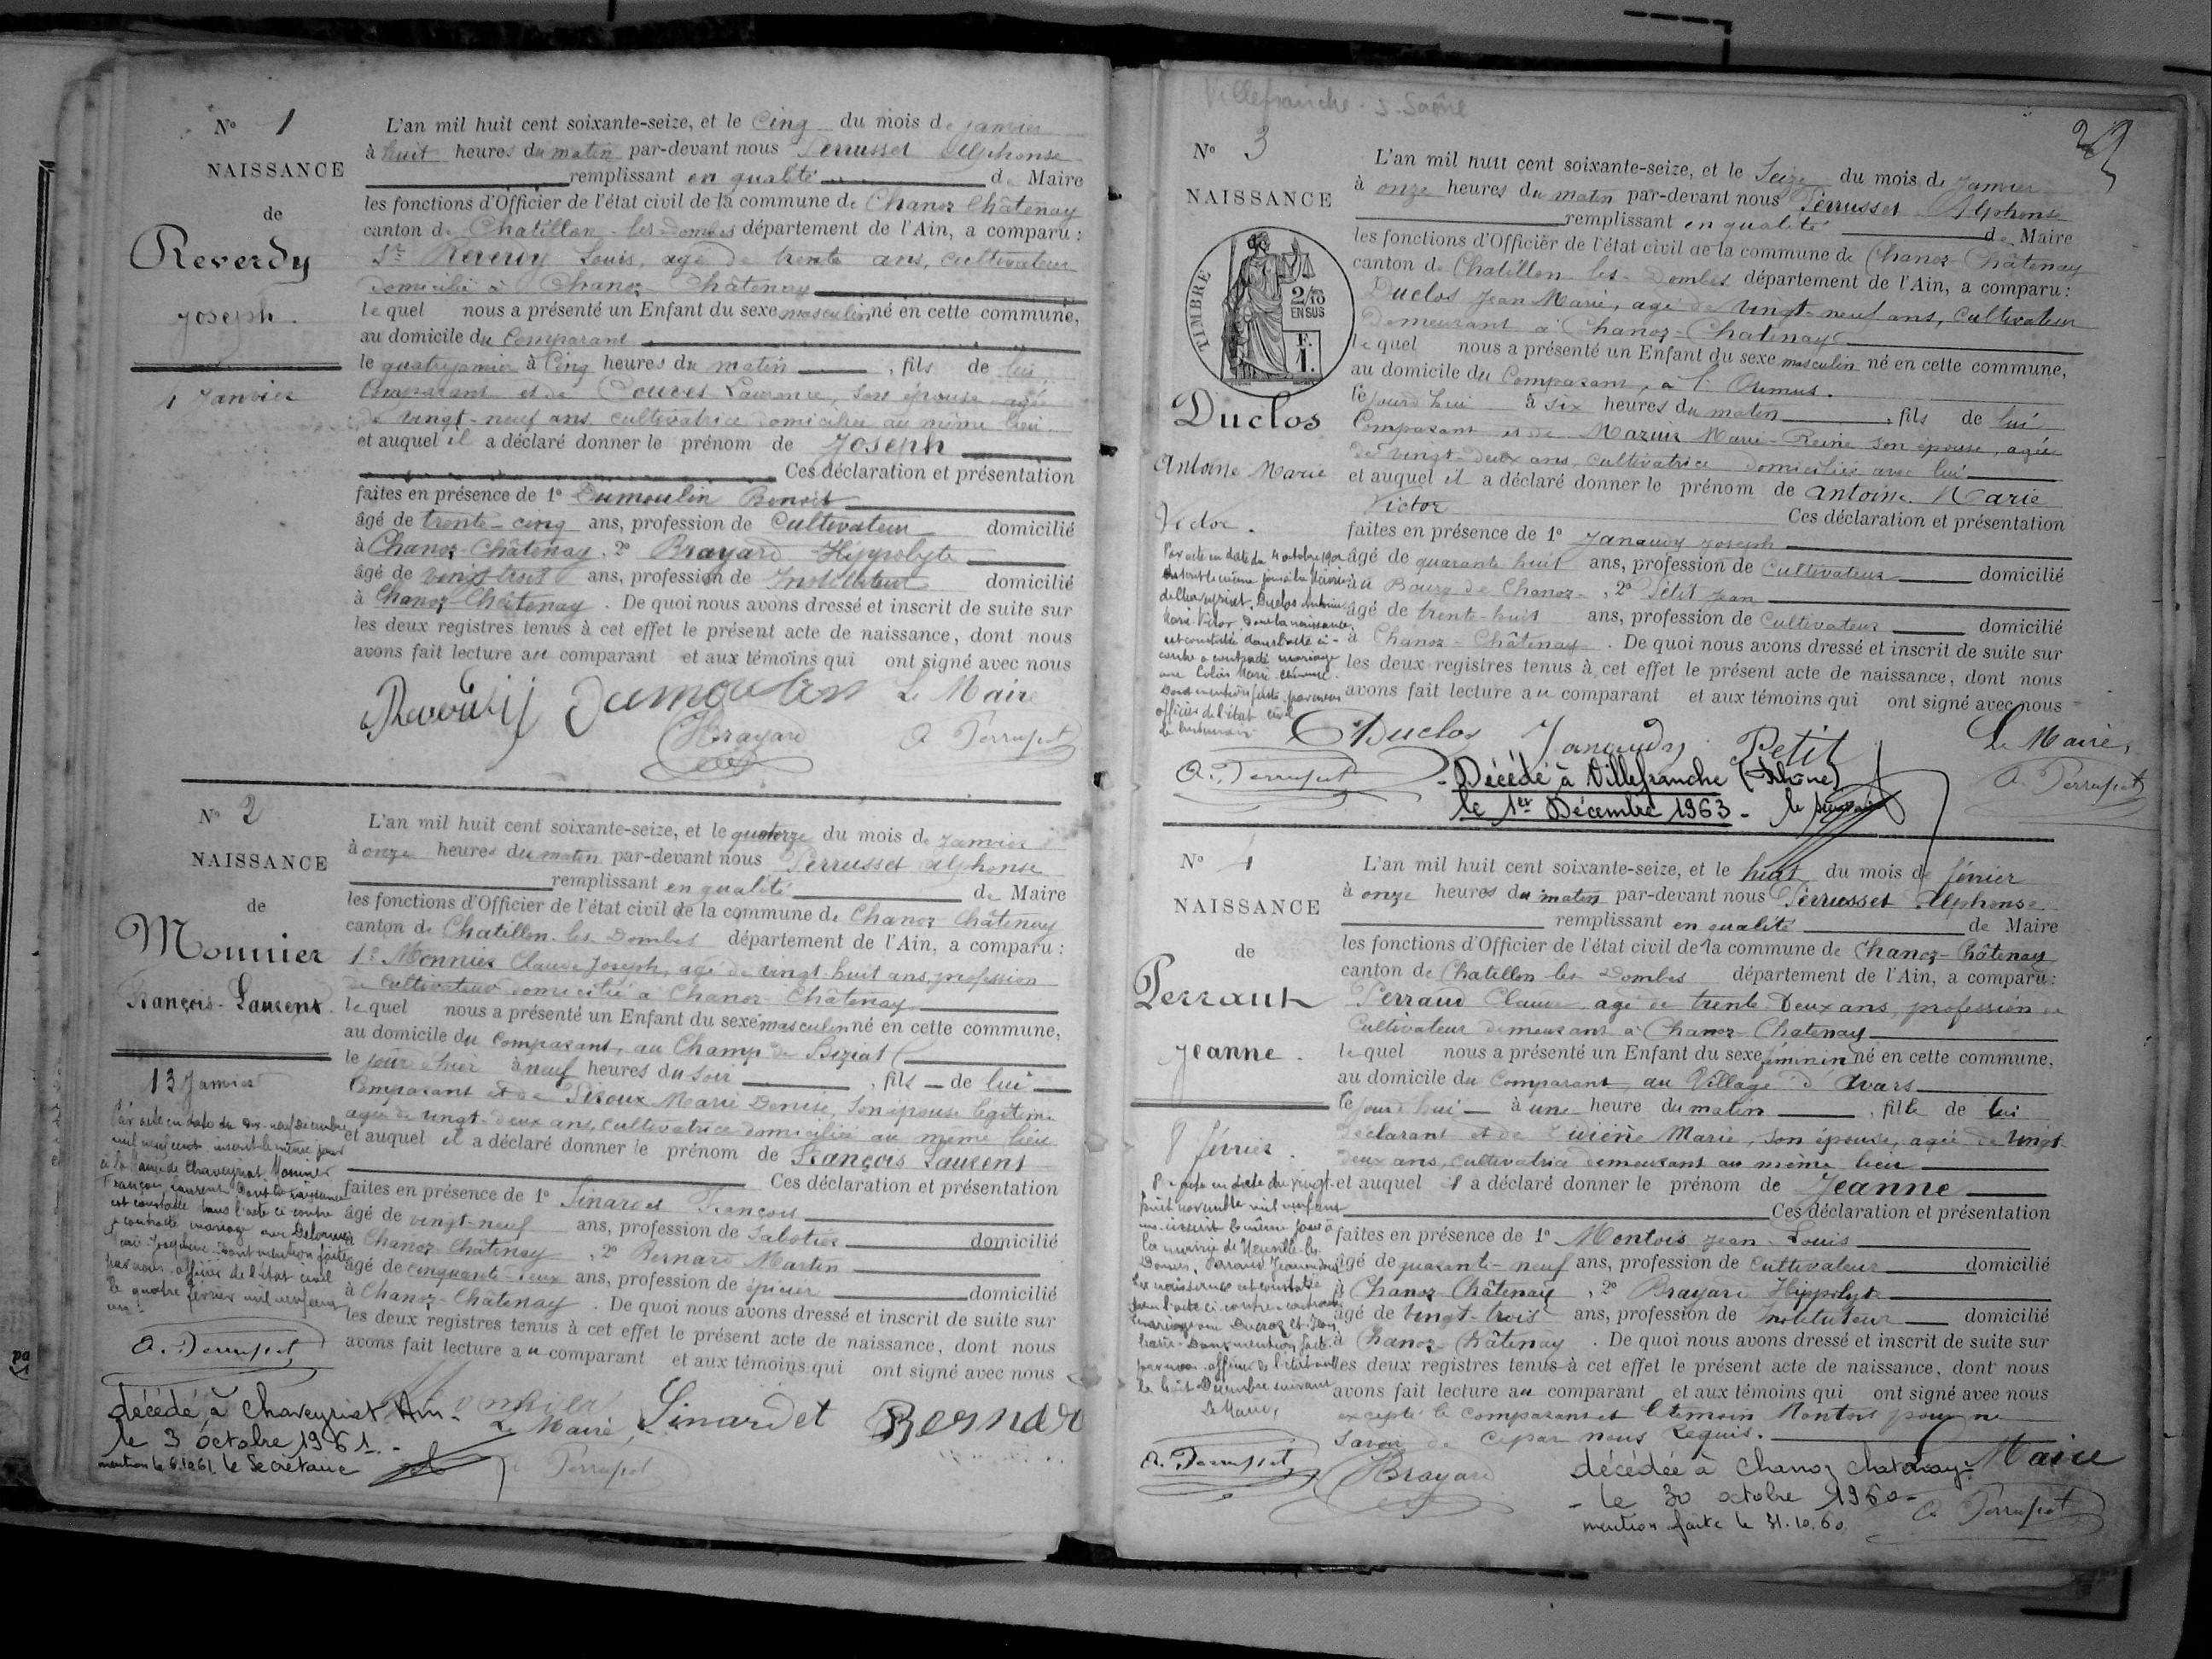 N° 1
NAISSANCE
de
Reverdy
Joseph.
4 Janvier
L'an mil huit cent soixante-seize, et le Cinq du mois de janvier
à huit heures du matin par-devant nous Perrusset Alphonse
remplissant en qualité de Maire
les fonctions d'Officier de l'état civil de la commune de Chanoz Châtenay
canton de Chatillon-les-Dombes département de l'Ain, a comparu :
Sr Reverdy Louis, agé de trente ans, cultivateur
domicilié à Chanoz-Châtenay
lequel nous a présenté un Enfant du sexe masculin né en cette commune,
au domicile du Comparant
le quatre janvier à Cinq heures du matin, fils de lui
Comparant et de Couvet Laurence, son épouse agée
de vingt-neuf ans, cultivatrice domiciliée au même lieu
et auquel il a déclaré donner le prénom de Joseph
Ces déclaration et présentation
faites en présence de 1° Dumoulin Benoit
âgé de trente-cinq ans, profession de Cultivateur domicilié
à Chanoz-Châtenay, 2° Brayard Hippolyte
âgé de vingt trois ans, profession de Instituteur domicilié
à Chanoz-Châtenay. De quoi nous avons dressé et inscrit de suite sur
les deux registres tenus à cet effet le présent acte de naissance, dont nous
avons fait lecture au comparant et aux témoins qui ont signé avec nous
Reverdy Dumoulin Le Maire
HBrayard A Perrusset
N° 2
NAISSANCE
de
Monnier
François-Laurent.
13 Janvier
L'an mil huit cent soixante-seize, et le quatorze du mois de Janvier
à onze heures du matin par-devant nous Perrusset Alphonse
remplissant en qualité de Maire
les fonctions d'Officier de l'état civil de la commune de Chanoz Châtenay
canton de Chatillon-les-Dombes département de l'Ain, a comparu :
Sr Monnier Claude Joseph, agé de vingt-huit ans, profession
de cultivateur domicilié à Chanoz-Châtenay
lequel nous a présenté un Enfant du sexe masculin né en cette commune,
au domicile du Comparant, au Champ de Biziat
le jour d'hier à neuf heures du soir, fils de lui
Comparant et de Piroux Marie Denise, son épouse légitime
agée de vingt-deux ans, cultivatrice domiciliée au même lieu
et auquel il a déclaré donner le prénom de François Laurent
Ces déclaration et présentation
faites en présence de 1° Linardet François
âgé de vingt-neuf ans, profession de Sabotier domicilié
Chanoz-Châtenay, 2° Bernard Martin
âgé de cinquante-deux ans, profession de épicier domicilié
à Chanoz-Châtenay. De quoi nous avons dressé et inscrit de suite sur
les deux registres tenus à cet effet le présent acte de naissance, dont nous
avons fait lecture au comparant et aux témoins qui ont signé avec nous
Par acte en date du dix-neuf décembre
mil neuf cent inscrit le même jour
à la Mairie de Chaveyriat Monnier
François Laurent dont la naissance
est constatée dans l'acte ci-contre
a contracté mariage avec Delorme
Marie-Joséphine. Dont mention faite
par nous officier de l'état civil
le quatre février mil neuf cent
un.
A. Perrusset
Monnier Linardet Bernard
Le Maire,
A Perrusset
décédé à Chaveyriat Ain.
le 3 octobre 1961.
mention le 6.10.61. le Secrétaire
Villefranche-s-Saône
23
N° 3
NAISSANCE
TIMBRE
2/10
EN SUS
F.
1.
Duclos
Antoine Marie
Victor.
L'an mil huit cent soixante-seize, et le Seize du mois de Janvier
à onze heures du matin par-devant nous Perrusset Alphonse
remplissant en qualité de Maire
les fonctions d'Officier de l'état civil de la commune de Chanoz-Châtenay
canton de Chatillon-les-Dombes département de l'Ain, a comparu :
Duclos Jean Marie, agé de vingt-neuf ans, Cultivateur
Demeurant à Chanoz-Chatenay
lequel nous a présenté un Enfant du sexe masculin né en cette commune,
au domicile du Comparant, à l'
Cejourd'hui à six heures du matin, fils de lui
Comparant et de Mazuir Marie-Reine son épouse, agée
de vingt-deux ans, cultivatrice domiciliée avec lui
et auquel il a déclaré donner le prénom de Antoine Marie
Victor Ces déclaration et présentation
faites en présence de 1° Janaudy Joseph
âgé de quarante huit ans, profession de Cultivateur domicilié
au Bourg de Chanoz, 2° Petit Jean
âgé de trente-huit ans, profession de Cultivateur domicilié
à Chanoz-Châtenay. De quoi nous avons dressé et inscrit de suite sur
les deux registres tenus à cet effet le présent acte de naissance, dont nous
avons fait lecture au comparant et aux témoins qui ont signé avec nous
Par acte en date du 4 octobre
inscrit le même jour à la Mairie
de Chaveyriat, Duclos Antoine
Marie Victor dont la naissance
est constatée dans l'acte ci-
contre a contracté mariage
avec Colin Marie
Dont mention faite par nous
officier de l'état civil
Duclos Janaudy Petit Le Maire,
A. Perrusset A. Perrusset
Décédé à Villefranche (Rhône)
le 1er Décembre 1963. le
N° 4
NAISSANCE
de
Perraud
Jeanne.
8 février.
L'an mil huit cent soixante-seize, et le huit du mois de février
à onze heures du matin par-devant nous Perrusset Alphonse
remplissant en qualité de Maire
les fonctions d'Officier de l'état civil de la commune de Chanoz-Châtenay
canton de Chatillon-les-Dombes département de l'Ain, a comparu :
Perraud Claude agé de trente-Deux ans, profession de
Cultivateur demeurant à Chanoz-Chatenay
lequel nous a présenté un Enfant du sexe féminin né en cette commune,
au domicile du Comparant, au Village d'Avars
Cejourd'hui à une heure du matin, fille de lui
déclarant et de Marie, son épouse, agée de vingt
deux ans, cultivatrice demeurant au même lieu
et auquel il a déclaré donner le prénom de Jeanne
Ces déclaration et présentation
faites en présence de 1° Montois Jean-Louis
âgé de quarante-neuf ans, profession de Cultivateur domicilié
à Chanoz Châtenay, 2° Brayard Hippolyte
âgé de vingt-trois ans, profession de Instituteur domicilié
à Chanoz-Châtenay. De quoi nous avons dressé et inscrit de suite sur
les deux registres tenus à cet effet le présent acte de naissance, dont nous
avons fait lecture au comparant et aux témoins qui ont signé avec nous
excepté le comparant et le témoin Montois pour ne
savoir de ce par nous Requis.
Par acte en date du vingt-
huit novembre mil neuf cent
un inscrit le même jour à
la mairie de Neuville-les-
Dames, Perraud Jeanne dont
la naissance est constatée
dans l'acte ci-contre a contracté
mariage avec Ducroz
Marie. Dont mention faite
par nous officier de l'état civil
le huit Décembre suivant
Le Maire,
A. Perrusset
HBrayard Maire
A Perrusset
décédée à Chanoz Chatenay
le 30 octobre 1960.
mention faite le 31.10.60